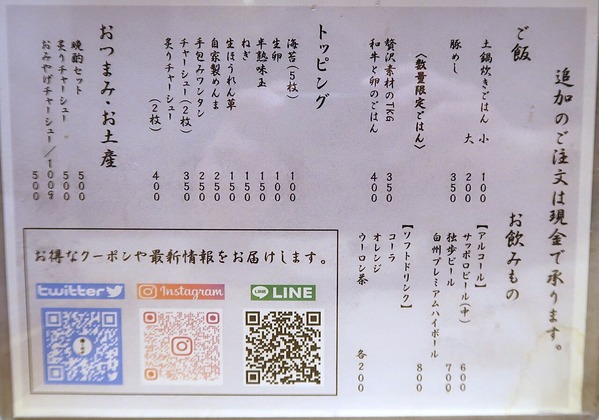 追加のご注文は現金で承ります。
ご飯
土鍋炊きごはん 小 100
大 200
豚めし 350
〈数量限定ごはん〉
贅沢素材のTKG 350
和牛と卵のごはん 400
お飲みもの
【アルコール】
サッポロビール(中) 600
独歩ビール 700
白州プレミアムハイボール 800
【ソフトドリンク】
コーラ
オレンジ
ウーロン茶 各200
トッピング
海苔(5枚) 100
生卵 100
半熟味玉 150
ねぎ 150
生ほうれん草 150
自家製めんま 200
手包みワンタン 250
チャーシュー(2枚) 350
炙りチャーシュー(2枚) 400
おつまみ・お土産
晩酌セット 500
炙りチャーシュー 500
おみやげチャーシュー/100g 500
お得なクーポンや最新情報をお届けします。
twitter
Instagram
LINE LINE